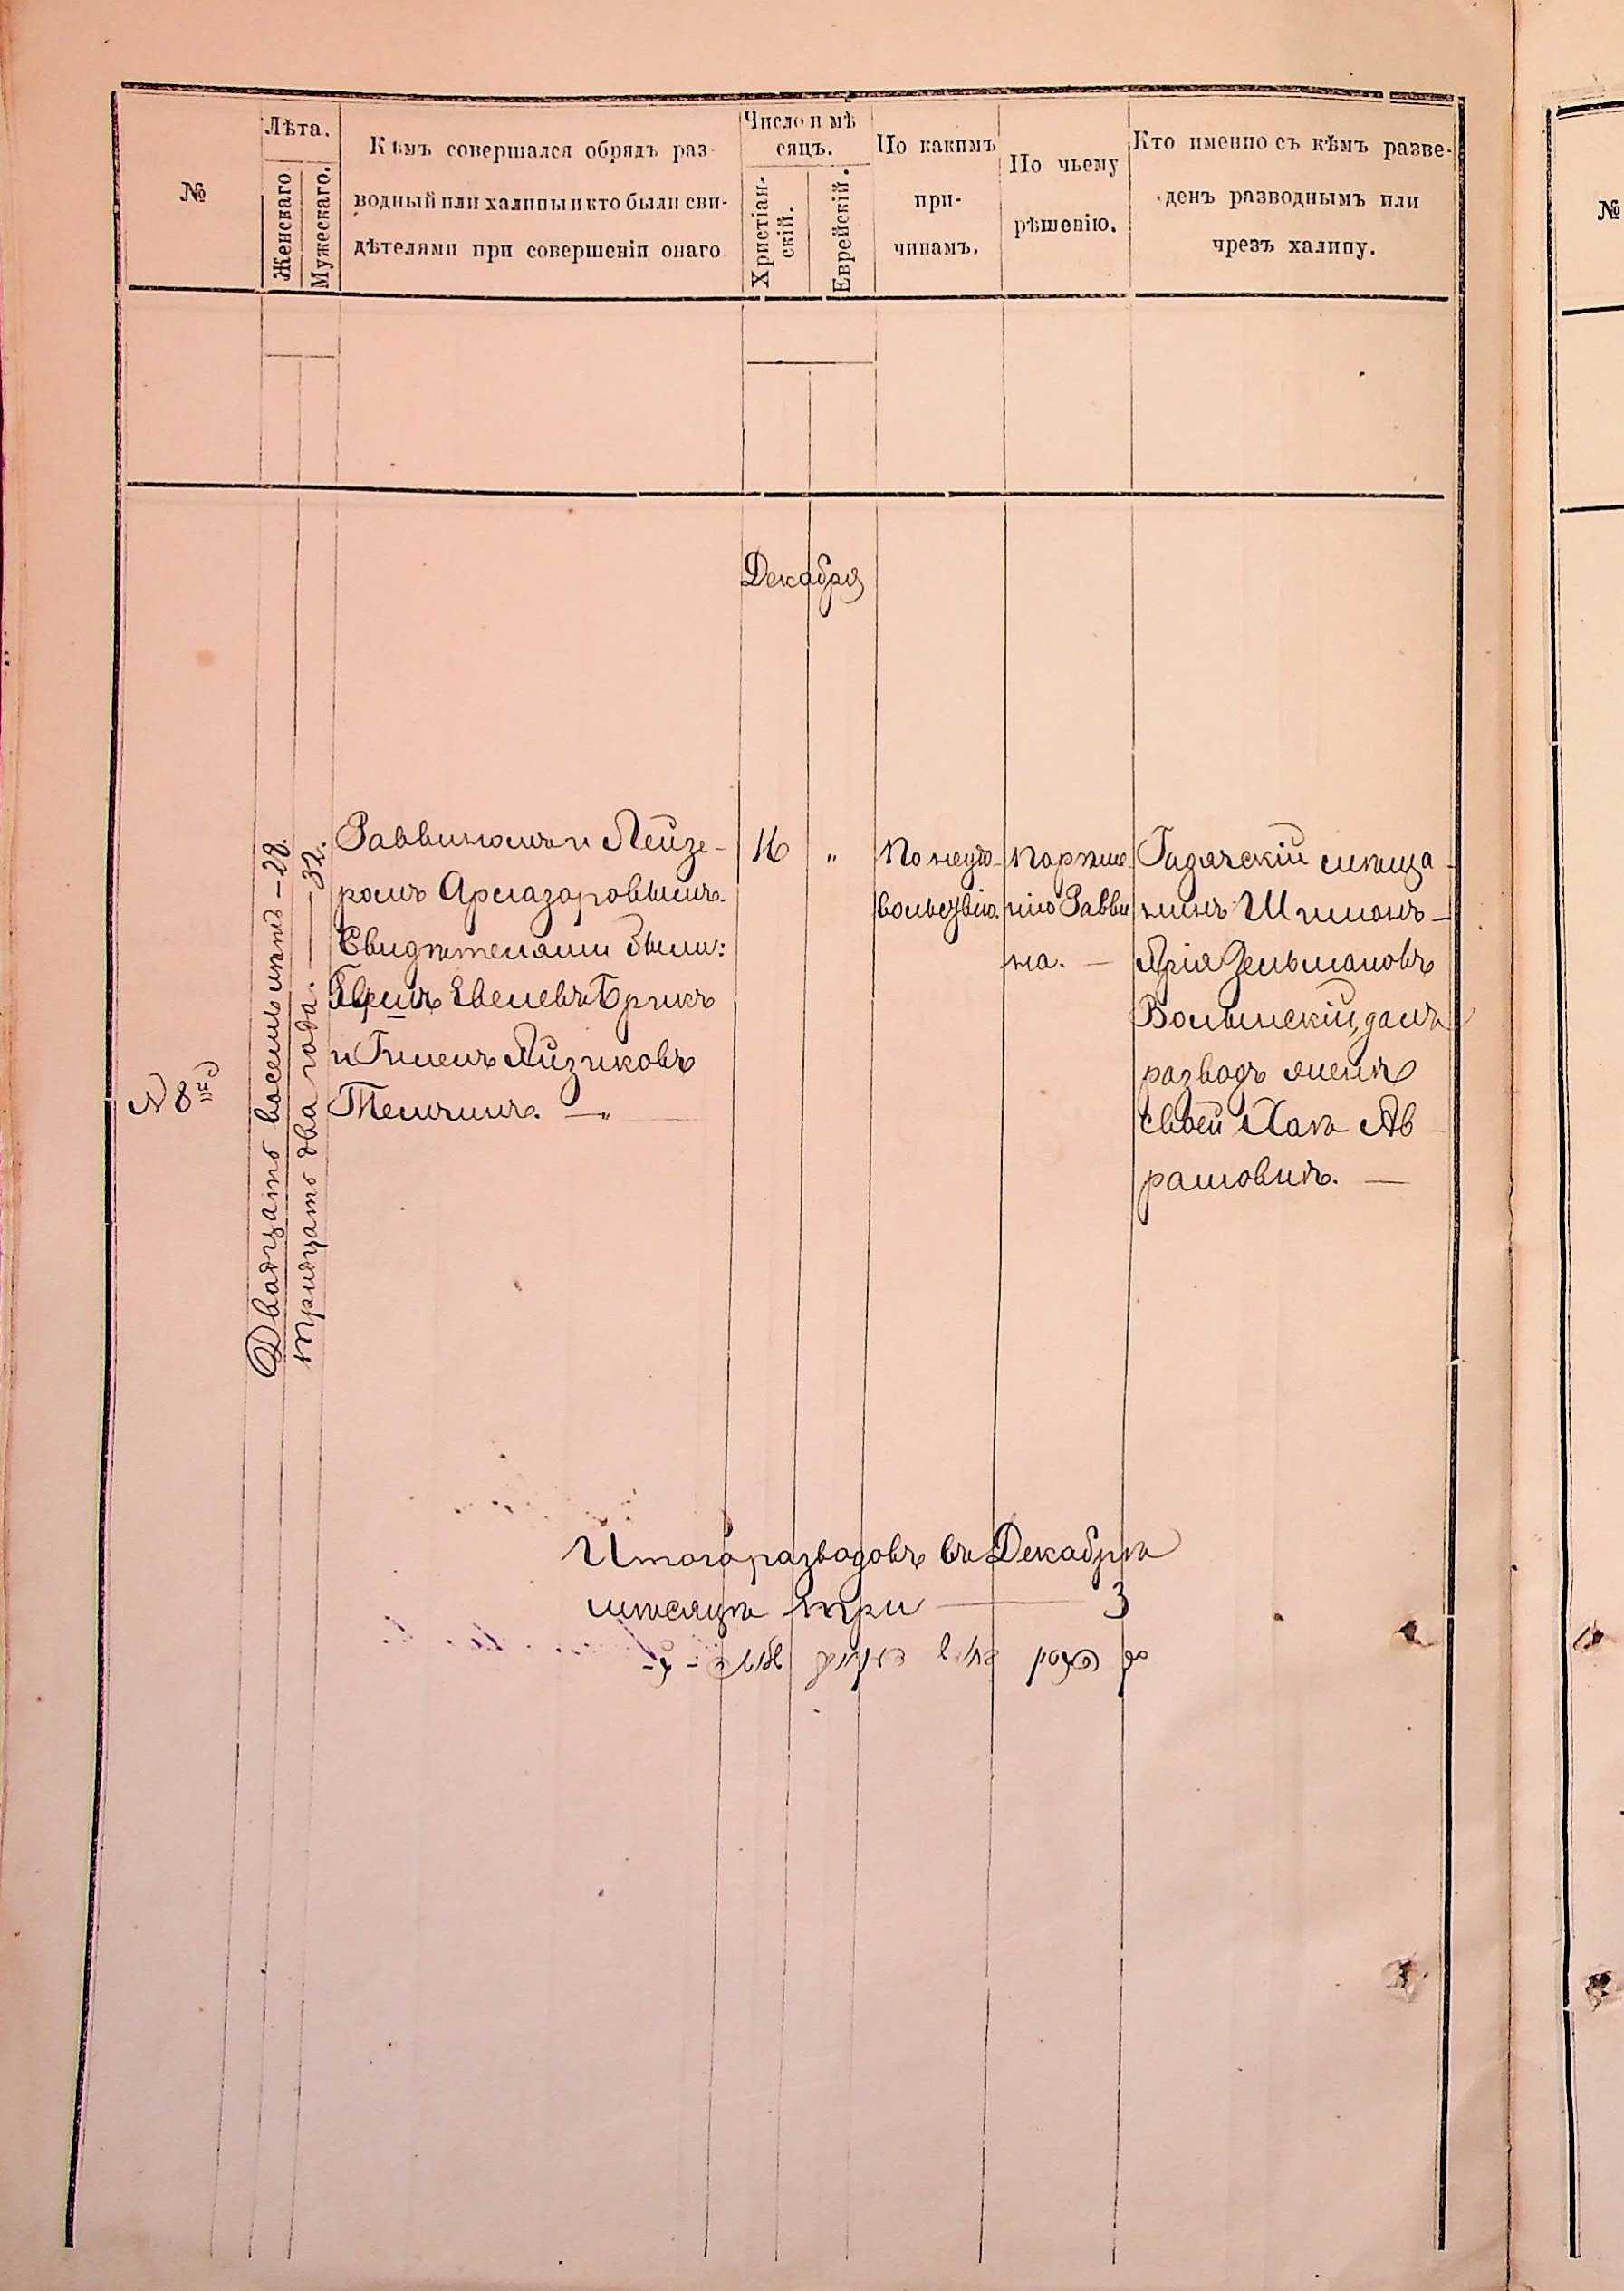 №
Лѣта.
Женскаго
Мужескаго.
Кѣмъ совершался обрядъ раз-
водный или халицы и кто были сви-
дѣтелями при совершеніи онаго
Число и мѣ
сяцъ.
Христіан-
скій.
Еврейскій.
По какимъ
при-
чинамъ.
По чьему
рѣшенію.
Кто именно съ кѣмъ разве-
денъ разводнымъ или
чрезъ халицу.
№
Декабря
№ 8й
Двадцать восемь лѣтъ – 28.
Тридцать два года. — 32.
Раввиномъ Лейзе-
ромъ
Свидѣтелями были:
Евелевъ Брикъ
и Гилелъ Айзиковъ
16 "
По неудо-
вольствію.
По рѣше-
нію Равви
на. —
Гадячскій мѣща-
нинъ Шимонъ-
Арія Зельмановъ
Волынскій, далъ
разводъ женѣ
своей Ханѣ Ав
рамовнѣ. —
Итого разводовъ въ Декабрѣ
мѣсяцѣ три — 3